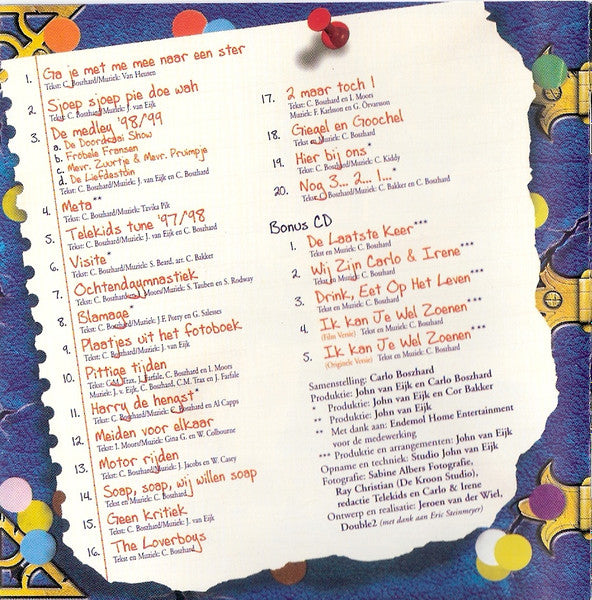 1. Ga je met me mee naar een ster
Tekst: C. Boszhard/Muziek: Van Heusen
2. Sjoep sjoep pie doe wah
Tekst: C. Boszhard/Muziek: J. van Eijk
3. De medley '98/'99
a. De Doordraai Show
b. Frobele Fransen
c. Mevr. Zuurtje & Mevr. Pruimpje
d. De Liefdestoin
Tekst: C. Boszhard/Muziek: J. van Eijk en C. Boszhard
4. Meta**
Tekst: C. Boszhard/Muziek: Tsvika Pik
5. Telekids tune '97/'98
Tekst: C. Boszhard/Muziek: J. van Eijk en C. Boszhard
6. Visite*
Tekst: C. Boszhard/Muziek: S. Beard, arr. C. Bakker
7. Ochtendgymnastiek
Tekst: C. Boszhard/J. Moors/Muziek: S. Tauben en S. Rodway
8. Blamage*
Tekst: C. Boszhard/Muziek: J.F. Poety en G. Salesses
9. Plaatjes uit het fotoboek
Tekst: C. Boszhard/Muziek: J. van Eijk
10. Pittige tijden
Tekst: C.M. Tras, J. Farfale, C. Boszhard en I. Moors
Muziek: J. v. Eijk, C. Boszhard, C.M. Tras en J. Farfale
11. Harry de hengst*
Tekst: C. Boszhard/Muziek: C. Boszhard en Al Capps
12. Meiden voor elkaar
Tekst: I. Moors/Muziek: Gina G. en W. Colbourne
13. Motor rijden
Tekst: C. Boszhard/Muziek: J. Jacobs en W. Casey
14. Soap, soap, wij willen soap
Tekst en Muziek: C. Boszhard
15. Geen kritiek
Tekst: C. Boszhard/Muziek: J. van Eijk
16. The Loverboys
Tekst en Muziek: C. Boszhard
17. 2 maar toch !
Tekst: C. Boszhard en I. Moors
Muziek: F. Karlson en G. Örvarsson
18. Giegel en Goochel
Tekst en Muziek: C. Boszhard
19. Hier bij ons*
Tekst: C. Boszhard/Muziek: C. Kiddy
20. Nog 3... 2... 1...*
Tekst: C. Boszhard/Muziek: C. Bakker en C. Boszhard
Bonus CD
1. De Laatste Keer***
Tekst en Muziek: C. Boszhard
2. Wij Zijn Carlo & Irene***
Tekst en Muziek: C. Boszhard
3. Drink, Eet Op Het Leven***
Tekst en Muziek: C. Boszhard
4. Ik Kan Je Wel Zoenen***
(Film Versie) Tekst en Muziek: C. Boszhard
5. Ik Kan Je Wel Zoenen***
(Originele Versie) Tekst en Muziek: C. Boszhard
Samenstelling: Carlo Boszhard
Produktie: John van Eijk en Carlo Boszhard
* Produktie: John van Eijk en Cor Bakker
** Produktie: John van Eijk
** Met dank aan: Endemol Home Entertainment
voor de medewerking
*** Produktie en arrangementen: John van Eijk
Opname en techniek: Studio John van Eijk
Fotografie: Sabine Albers Fotografie,
Ray Christian (De Kroon Studio),
redactie Telekids en Carlo & Irene
Ontwerp en realisatie: Jeroen van der Wiel,
Double2 (met dank aan Eric Steinmeyer)